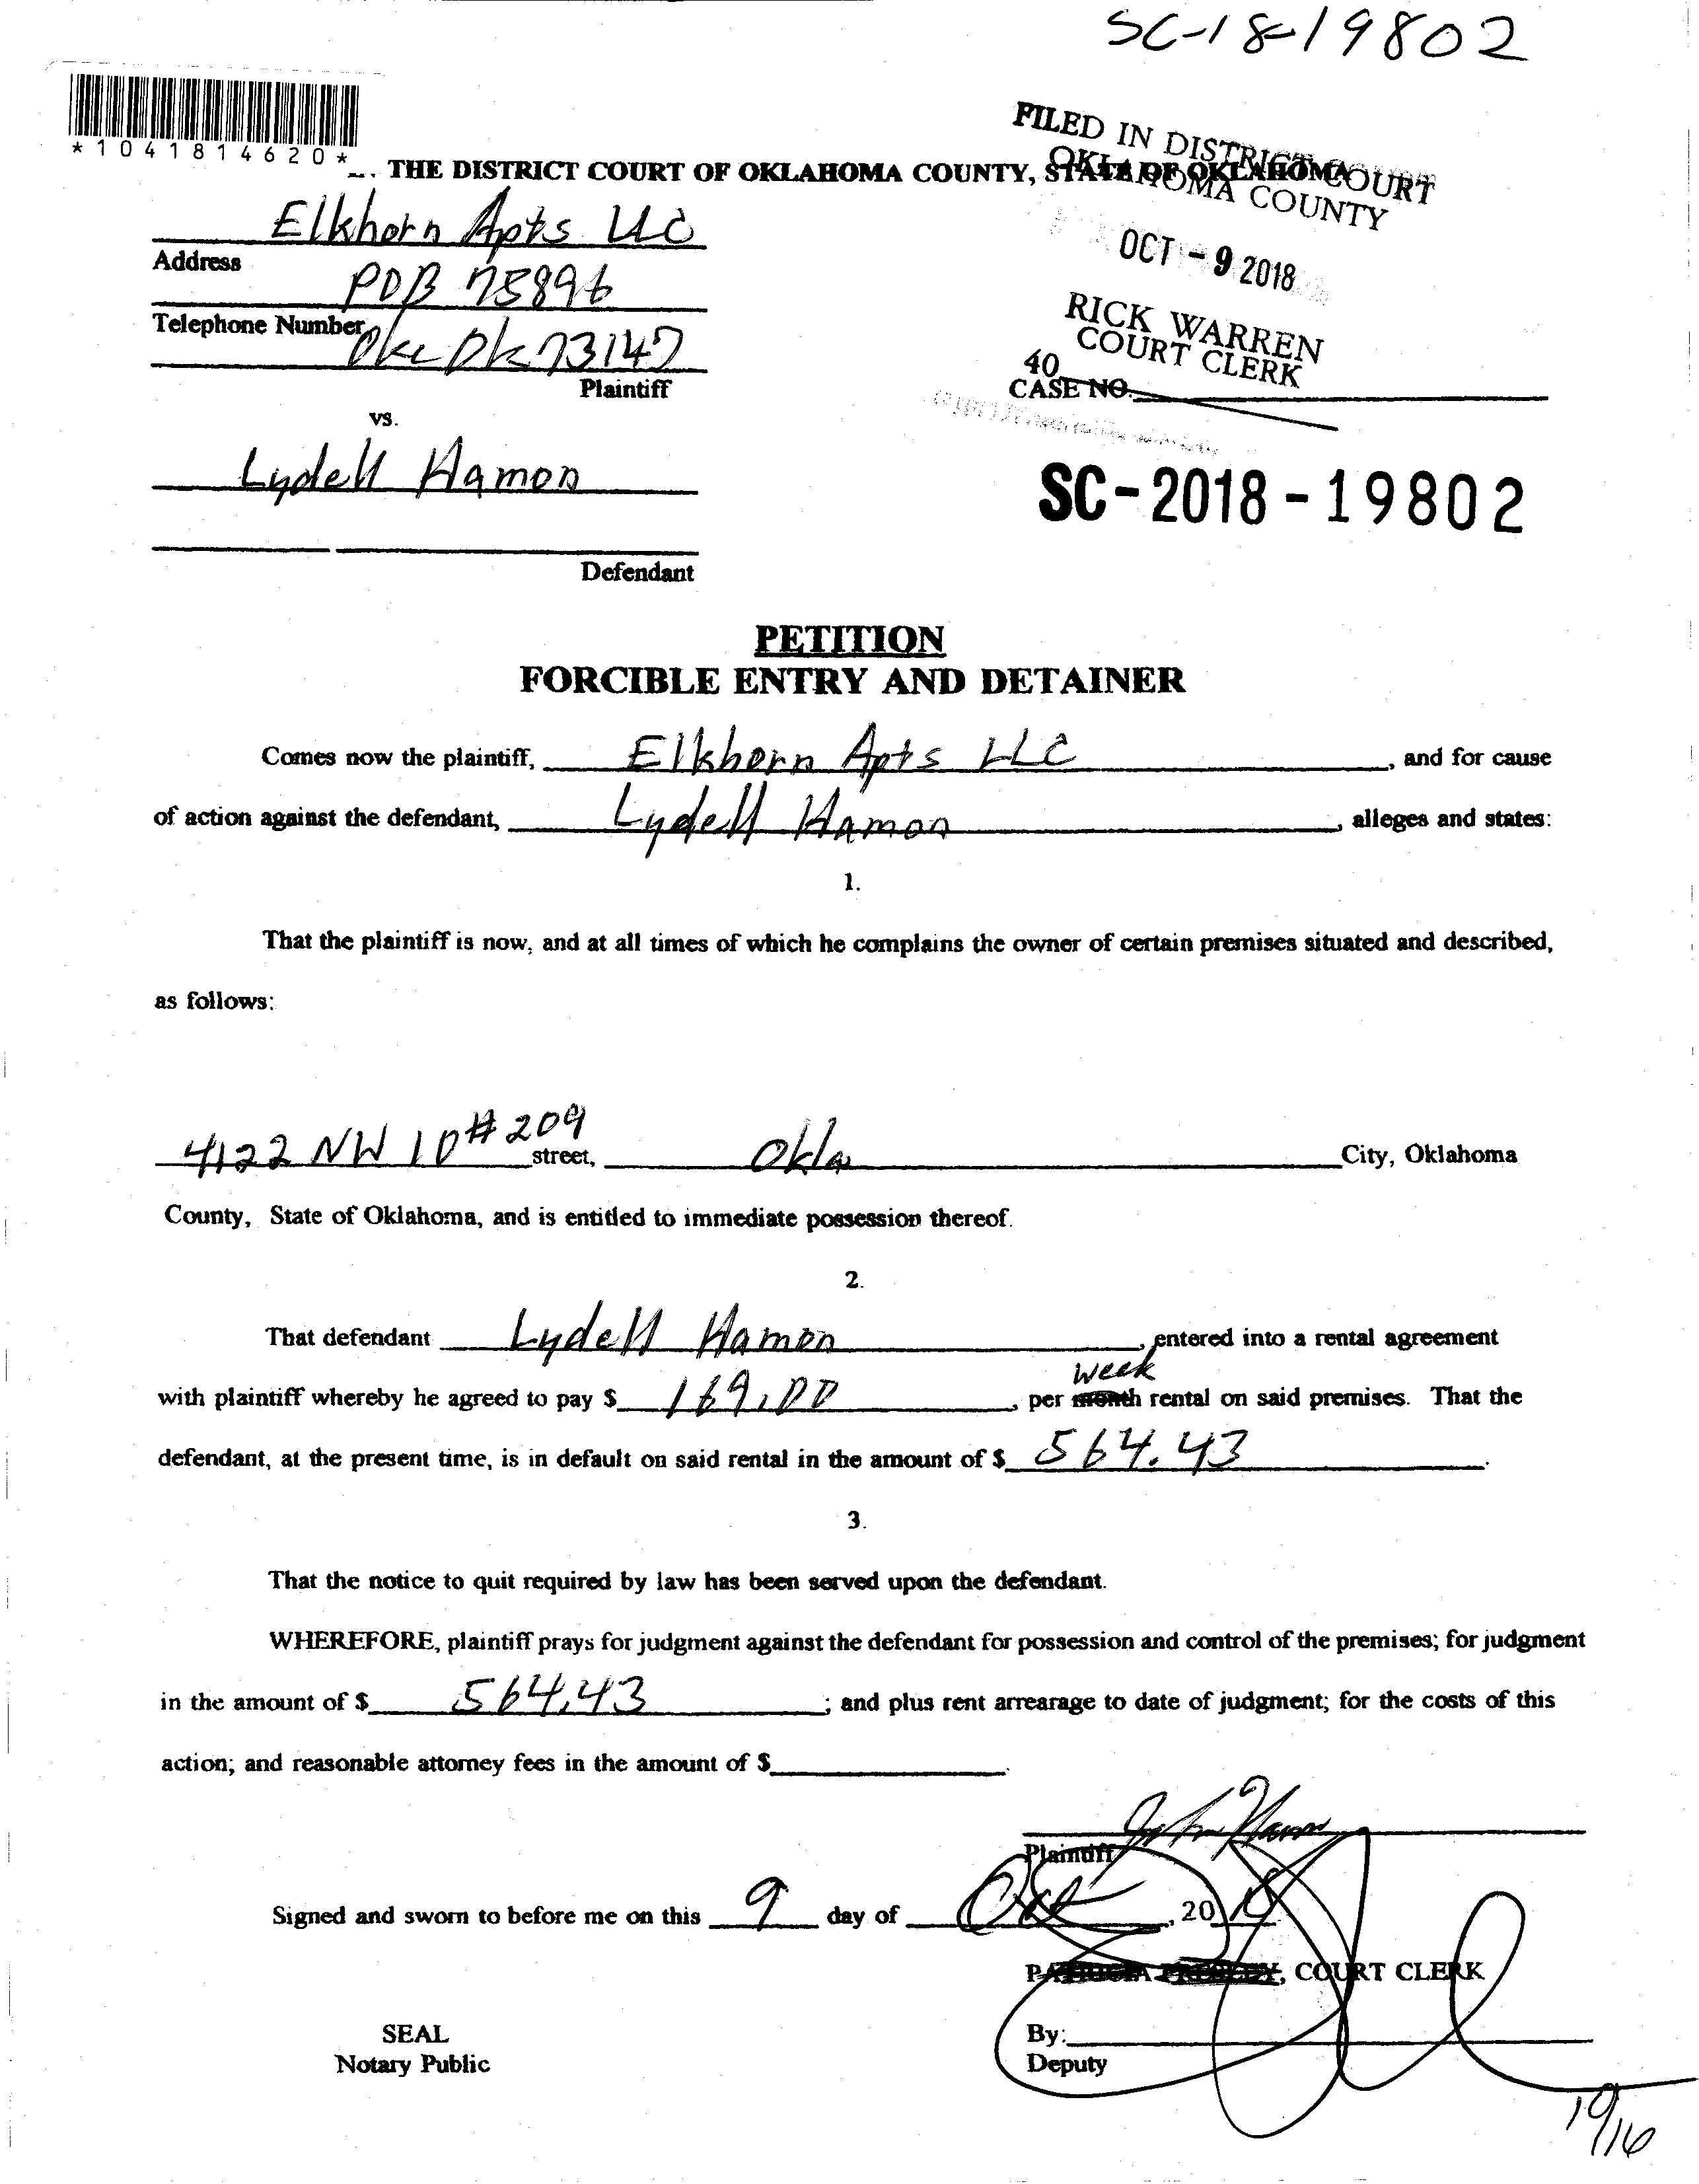 SC-18-19802
*1041814620*
THE DISTRICT COURT OF OKLAHOMA COUNTY, STATE OF OKLAHOMA
FILED IN DISTRICT COURT
OKLAHOMA COUNTY
OCT - 9 2018
RICK WARREN
COURT CLERK
40
CASE NO.
SC-2018-19802
Elkhorn Apts LLC
Address
POB 75896
Telephone Number
Okc Ok 73147
Plaintiff
vs.
Lydell Hamon
Defendant
PETITION
FORCIBLE ENTRY AND DETAINER
Comes now the plaintiff, Elkhorn Apts LLC, and for cause
of action against the defendant, Lydell Hamon, alleges and states:
1.
That the plaintiff is now, and at all times of which he complains the owner of certain premises situated and described,
as follows:
4122 NW 10 #209 street, Okla City, Oklahoma
County, State of Oklahoma, and is entitled to immediate possession thereof.
2.
That defendant Lydell Hamon, entered into a rental agreement
with plaintiff whereby he agreed to pay $ 169.00, per month week rental on said premises. That the
defendant, at the present time, is in default on said rental in the amount of $ 564.43.
3.
That the notice to quit required by law has been served upon the defendant.
WHEREFORE, plaintiff prays for judgment against the defendant for possession and control of the premises; for judgment
in the amount of $ 564.43; and plus rent arrearage to date of judgment; for the costs of this
action; and reasonable attorney fees in the amount of $
Plaintiff
Signed and sworn to before me on this 9 day of Oct, 2018
COURT CLERK
SEAL
Notary Public
By:
Deputy
10/16